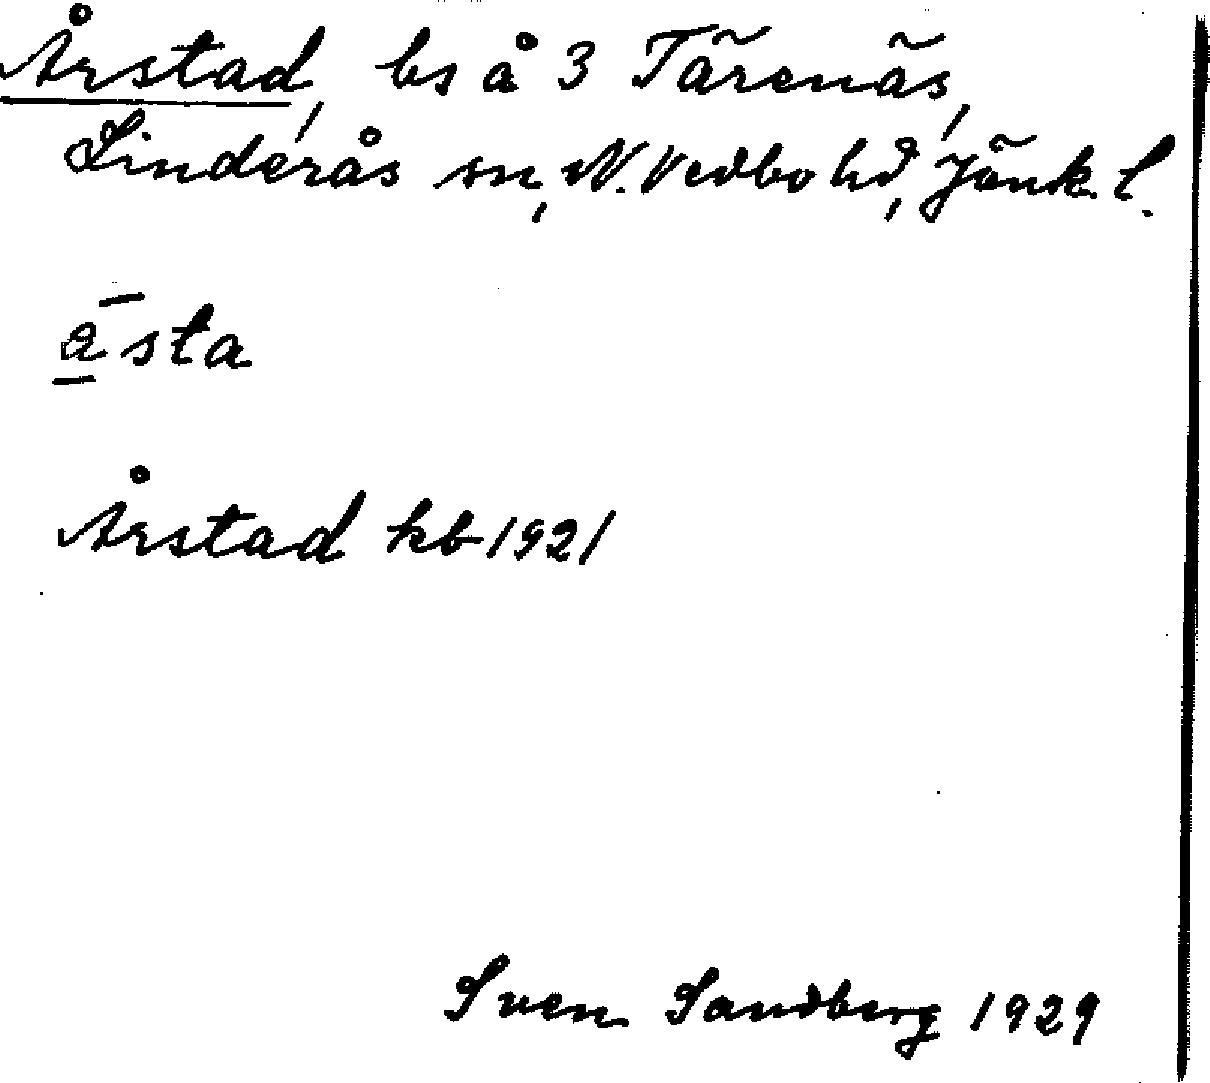 Årstad, bs å 3 Tärenäs,
Linderås sn, N. Vedbo hd, Jönk. l.
a̲̅sta
Årstad kb 1921
Sven Sandberg 1929